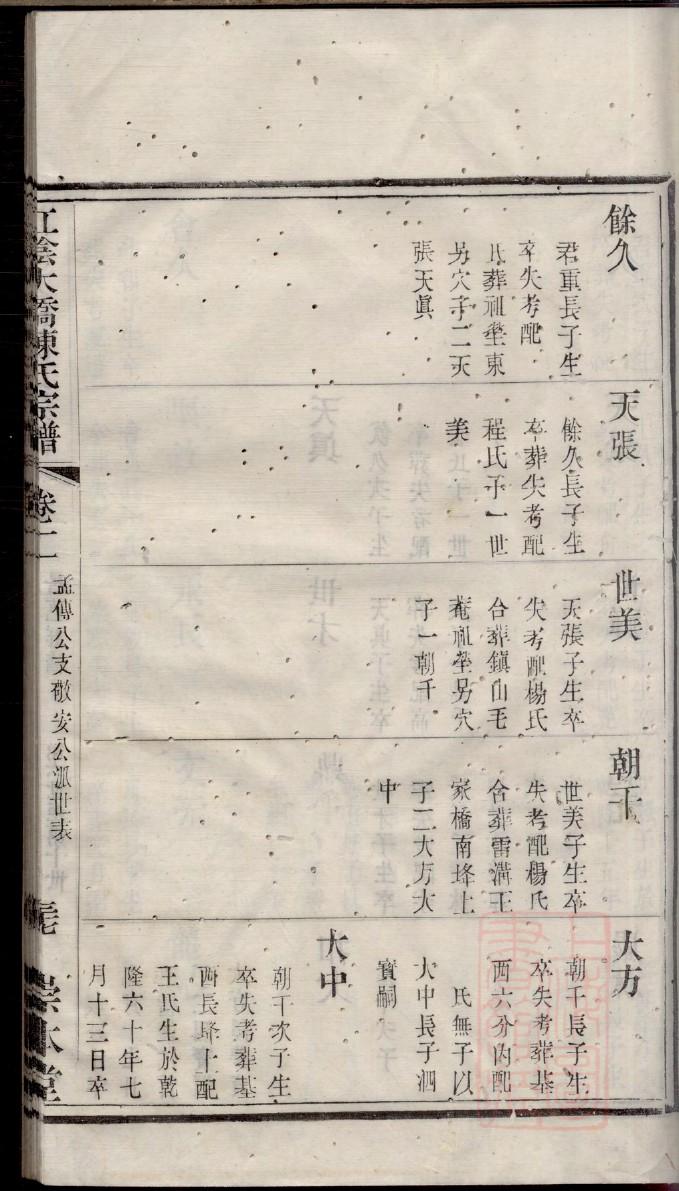 餘久
君重長子生
卒失考配
氏葬祖塋東
另穴子二天
張天眞
天張
餘久長子生
卒葬失考配
程氏子一世
美
世美
天張子生卒
失考配楊氏
合葬鎮山毛
菴祖塋另穴
子一朝千
朝千
世美子生卒
失考配楊氏
合葬雷溝王
家橋南埄上
子二大方大
中
大方
朝千長子生
卒失考葬基
西六分內配
氏無子以
大中長子泗
寶嗣
大中
朝千次子生
卒失考葬基
西長埄上配
王氏生於乾
隆六十年七
月十三日卒
江陰大橋陳氏宗譜
卷二
孟傳公支敬安公派世表
崇本堂